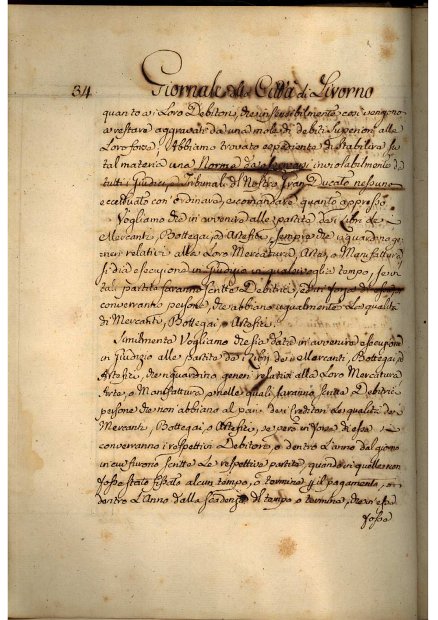 34 Giornale della Città di Livorno
quanto ai Loro Debitori, che insensibilmente così vengono
a restare aggravati da una mole di debiti superiori alla
Loro forza. Abbiamo trovato espediente di stabilire su
tal materia una Norma da osservarsi inviolabilmente da
tutti i Giudici, e Tribunali del Nostro Gran Ducato nessuno
eccettuato con ordinare, e comandare quanto appresso.
Vogliamo che in avvenire alle partite dei Libri de
Mercanti, Bottegai, ed Artefici, sempre che riguardino ge-
neri relativi alla Loro Mercatura, Arte, o Manifattura
si dia esecuzione in Giudizio in qualsivoglia tempo,
partite saranno scritte a Debitori, che in forza di esse
converranno persone, che abbiano ugualmente Le qualità
di Mercanti, Bottegai, o Artefici.
Similmente Vogliamo che sia data in avvenire esecuzione
in Giudizio alle partite dei Libri de Mercanti, Bottegai, ed
Artefici, che riguardino generi relativi alla Loro Mercatura
Arte, o Manifattura, e nelle quali saranno scritte Debitrici
persone che non abbiano al pari dei Creditori Le qualità di
Mercanti, Bottegai, o Artefici, se però in forza di esse
converranno i respettivi Debitori, o dentro L'anno dal giorno
in cui furono scritte Le respettive partite, quando in quelle non
fosse stato fissato alcun tempo, o termine p il pagamento, o
dentro L'Anno dalla scadenza del tempo o termine, che in esse
fosse